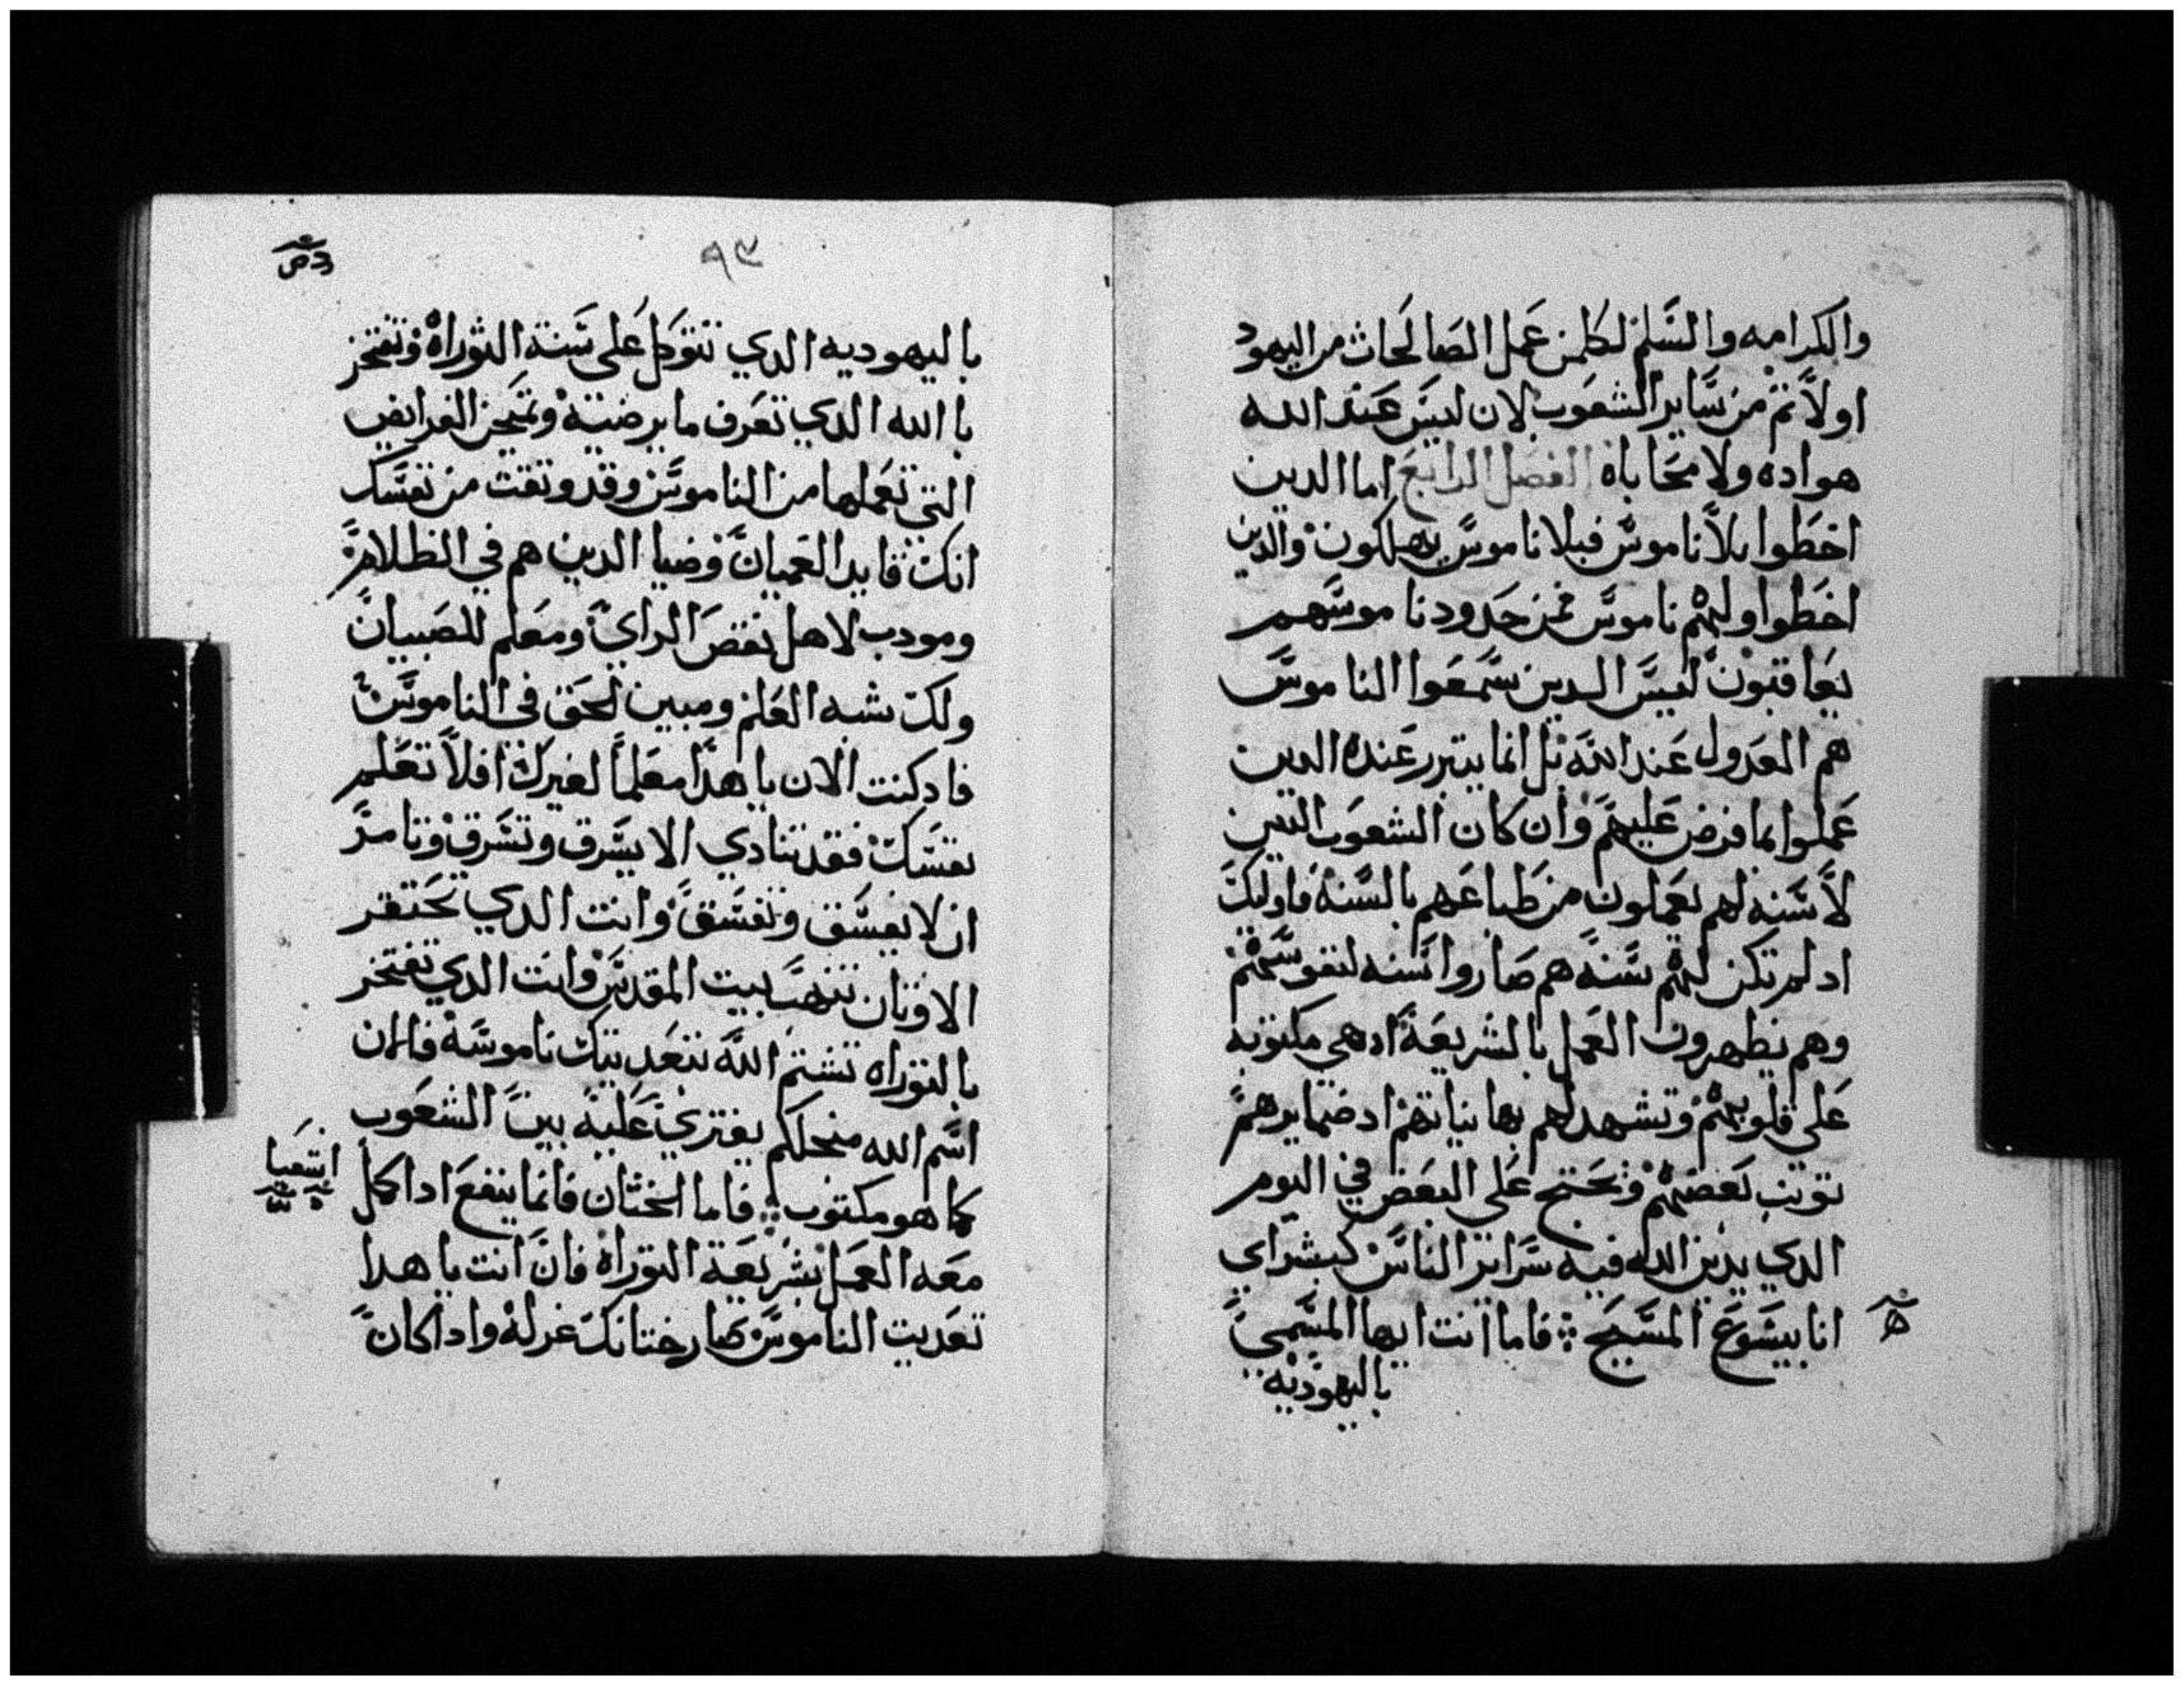 والكرامه والسلم لكلمن عمل الصالحات من اليهود
اولا ثم من ساير الشعوب لان ليس عند الله
هواده ولا محاباه الفصل الرابع اما الدين
اخطوا بلا ناموس فبلا ناموس يهلكون والدين
اخطوا ولهم ناموس فمن حدود ناموسهم
يعاقبون ليس الدين سمعوا الناموس
هم العدول عند الله بل انما يتبرر عنده الدين
عملوا بما فرض عليهم وان كان الشعوب التين
لا سنه لهم يعملون من طباعهم بالسنه فاوليك
اد لم تكن لهم سنه هم صاروا سنه لنفوسهم
وهم يظهرون العمل بالشريعة ادهي مكتوبه
على قلوبهم وتشهد لهم بها نياتهم اد ضمايرهم
توبب بعضهم وتحتج على البعض في اليوم
الدي يدين الله فيه سراير الناس كبشراي
انا بيسوع المسيح فاما انت ايها المسمي
باليهوديه
٩٣
باليهوديه الدي تتوكل على سنة التوراه وتفتخر
باالله الدي تعرف ما يرضيه وتميحن الفرايض
التي تعملها من الناموس وقد وثقت من نفسك
انك قايد العميان وضيا الدين هم في الظلام
ومودب لاهل نقص الراي ومعلم للصبيان
ولك شبه العلم ومبين الحق في الناموس
فادكنت الان يا هدا معلما لغيرك افلا تعلم
نفسك فقد تنادي الا يسرق وتسرق وتامر
ان لا يفسق وتفسق وانت الدي تحتقر
الاوثان تنهب بيت المقدس وانت الدي تفتخر
بالتوراه تشتم الله بتعديتك ناموسه فالان
اسم الله منجلكم يفتري عليه بين الشعوب
كما هو مكتوب فاما الختان فانما ينفع ادا كمل
اشعيا
معه العمل بشريعة التوراه فان انت يا هدا
تعديت الناموس صار ختانك غرلة وادا كان